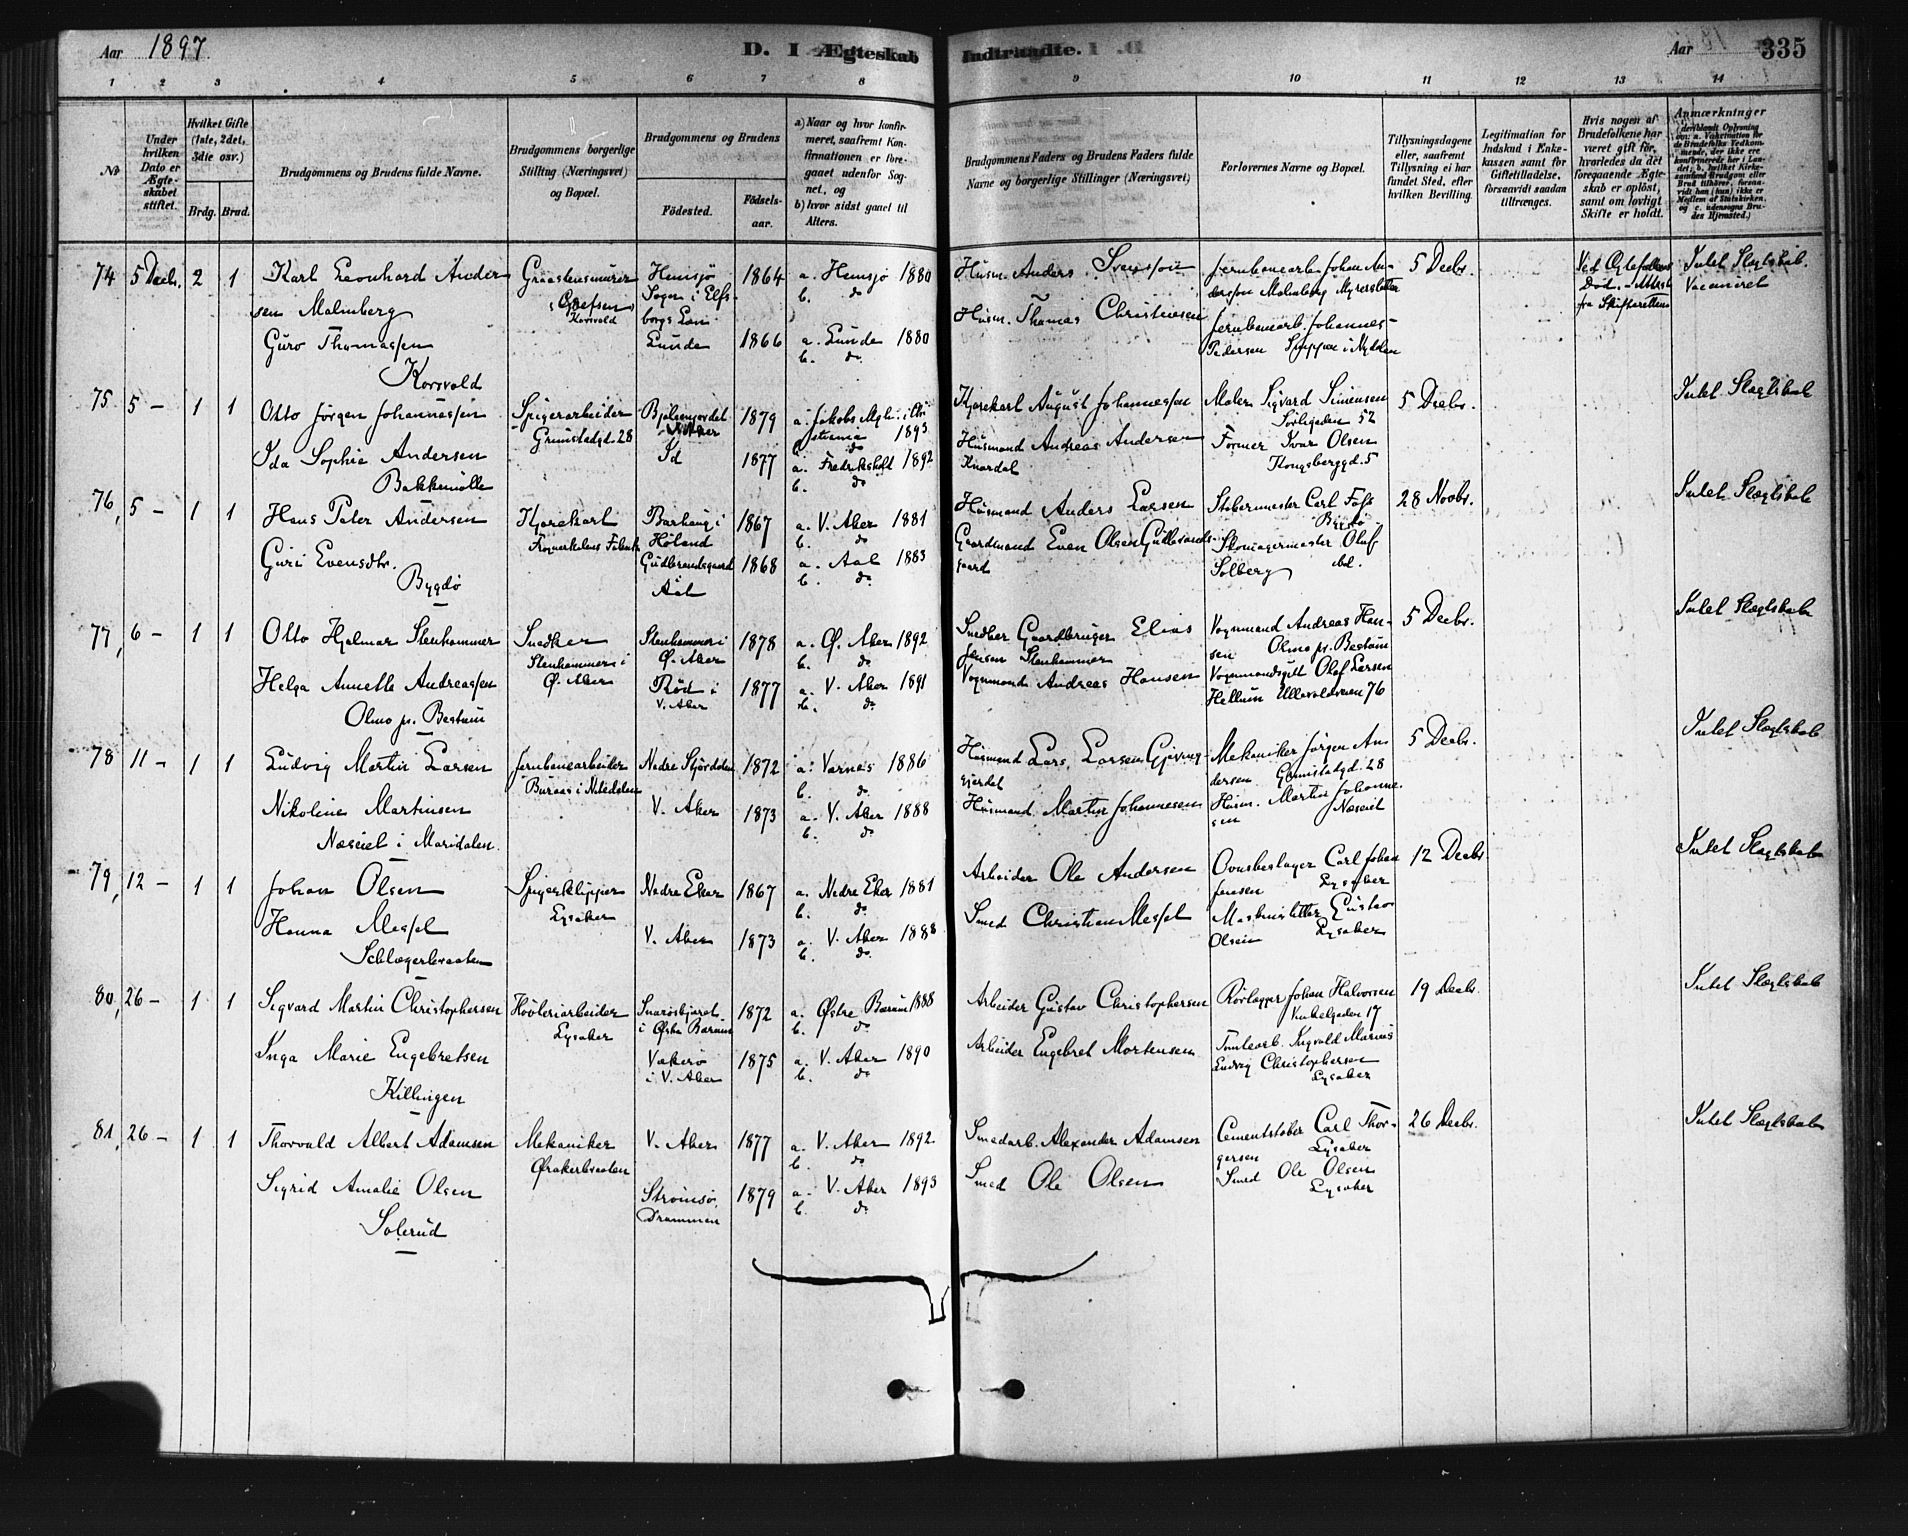 Aar 1897.
D. I Ægteskab Indtraadte.
Aar
335
1 2 3 4 5 6 7 8 9 10 11 12 13 14
№
Under hvilken Dato er Ægteskabet stiftet.
Hvilket Gifte (1ste, 2det, 3die osv.)
Brdg. Brud.
Brudgommens og Brudens fulde Navne.
Brudgommens borgerlige Stilling (Næringsvei) og Bopæl.
Brudgommens og Brudens
Fødested.
Fødselsaar.
a) Naar og hvor konfirmeret, saafremt Konfirmationen er foregaaet udenfor Sognet, og
b) hvor sidst gaaet til Alters.
Brudgommens Faders og Brudens Faders fulde Navne og borgerlige Stillinger (Næringsvei)
Forlovernes Navne og Bopæl.
Tillysningsdagene eller, saafremt Tillysning ei har fundet Sted, efter hvilken Bevilling.
Legitimation for Indskud i Enkekassen samt for Giftetilladelse, forsaavidt saadan tiltrænges.
Hvis nogen af Brudefolkene har været gift før, hvorledes da det foregaaende Ægteskab er opløst, samt om lovligt Skifte er holdt.
Anmærkninger
74 5 Decbr. 2 1
Karl Leonhard Andersen Malmberg
Guro Thomassen
Korsvold
Graastensmurer
Grefsen
Korsvold
Hemsjø Sogn i Elfsborgs Län
Lunde
1864
1866
a. Hemsjø 1880
b. do
a. Lunde 1880
b. do
Husm. Anders Svensson
Husm. Thomas Christensen
Jernbanearb. Johan Andersson Malmberg
Jernbanearb. Johannes Pedersen
5 Decbr.
Intet Slægtskab.
Vaccineret
75 5 – 1 1
Otto Jørgen Johannessen
Ida Sophie Andersen
Bakkemølle
Spigerarbeider
Grimstadgd. 28
Id
1879
1877
a. Jakobs Mgh. i Christiania 1893
b. do
a. Fredrikshald 1892
b. do
Kjørekarl August Johannessen
Husmand Andreas Andersen
Maler Sigvard Simensen
52
Former Ivar Olsen
Kongsberggd. 5
5 Decbr.
Intet Slægtskab
76 5 – 1 1
Hans Peter Andersen
Guri Evensdtr.
Bygdø
Kjørekarl
Barhaug i Høland
Gudbrandsgaard
Aal
1867
1868
a. V. Aker 1881
b. do
a. Aal 1883
b. do
Husmand Anders Larsen
Gaardmand Even Olsen Gudbrandsgaard
Støbermester Carl Foss
Bygdø
Skomagermester Oluf Solberg ibd.
28 Novbr.
Intet Slægtskab
77 6 – 1 1
Otto Hjalmar Stenhammer
Helga Annette Andreassen
Olmo pr. Bestum
Snedker
Stenhammer i Ø. Aker
Stenhammer i Ø. Aker
Rød i V. Aker
1878
1877
a. Ø. Aker 1892
b. do
a. V. Aker 1891
b. do
Snedker Gaardbruger Elias Jensen Stenhammer
Vognmand Andreas Hansen
Vognmand Andreas Hansen Olmo pr. Bestum
Vognmandsgut Olaf Larsen
Hellum Ullevoldsveien 76
5 Decbr.
Intet Slægtskab
78 11 – 1 1
Ludvig Martin Larsen
Nikoline Martinsen
Næseiet i Maridalen.
Jernbanearbeider
Buraas i Nitedalen
Nedre Stjørdalen
V. Aker
1872
1873
a. Værnes 1886
b. do
a. V. Aker 1888
b. do
Husmand Lars Larsen
Husmand Martin Johannesen
Mekaniker Jørgen Andersen Grimstadgd. 28
Husm. Martin Johannesen Næseiet
5 Decbr.
Intet Slægtskab
79 12 – 1 1
Johan Olsen
Hanna Messel
Schlægerbraaten
Spigerklipper
Lysaker
Nedre Eker
V. Aker
1867
1873
a. Nedre Eker 1881
b. do
a. V. Aker 1888
b. do
Arbeider Ole Andersen
Smed Christian Messel
Ovnsbeslager Carl Johan Jensen Lysaker
Gustav Olsen Lysaker
12 Decbr.
Intet Slægtskab
80 26 – 1 1
Sigvard Martin Christophersen
Inga Marie Engebretsen
Killingen
Høvleriarbeider
Lysaker
i Østre Bærum
Vækerø i V. Aker
1872
1875
a. Østre Bærum 1888
b. do
a. V. Aker 1890
b. do
Arbeider Gustav Christophersen
Arbeider Engebret Mortensen
Rørlægger Johan Halvorsen
17
Ingvald Marius Ludvig Christophersen
Lysaker
19 Decbr.
Intet Slægtskab
81 26 – 1 1
Thorvald Albert Adamsen
Sigrid Amalie Olsen
Solerud
Mekaniker
Ørakerbraaten
V. Aker
Strømsø, Drammen
1877
1879
a. V. Aker 1892
b. do
a. V. Aker 1893
b. do
Smedarb. Alexander Adamsen
Smed Ole Olsen
Cementstøber Carl Thorgersen Lysaker
Smed Ole Olsen
Lysaker
26 Decbr.
Intet Slægtskab